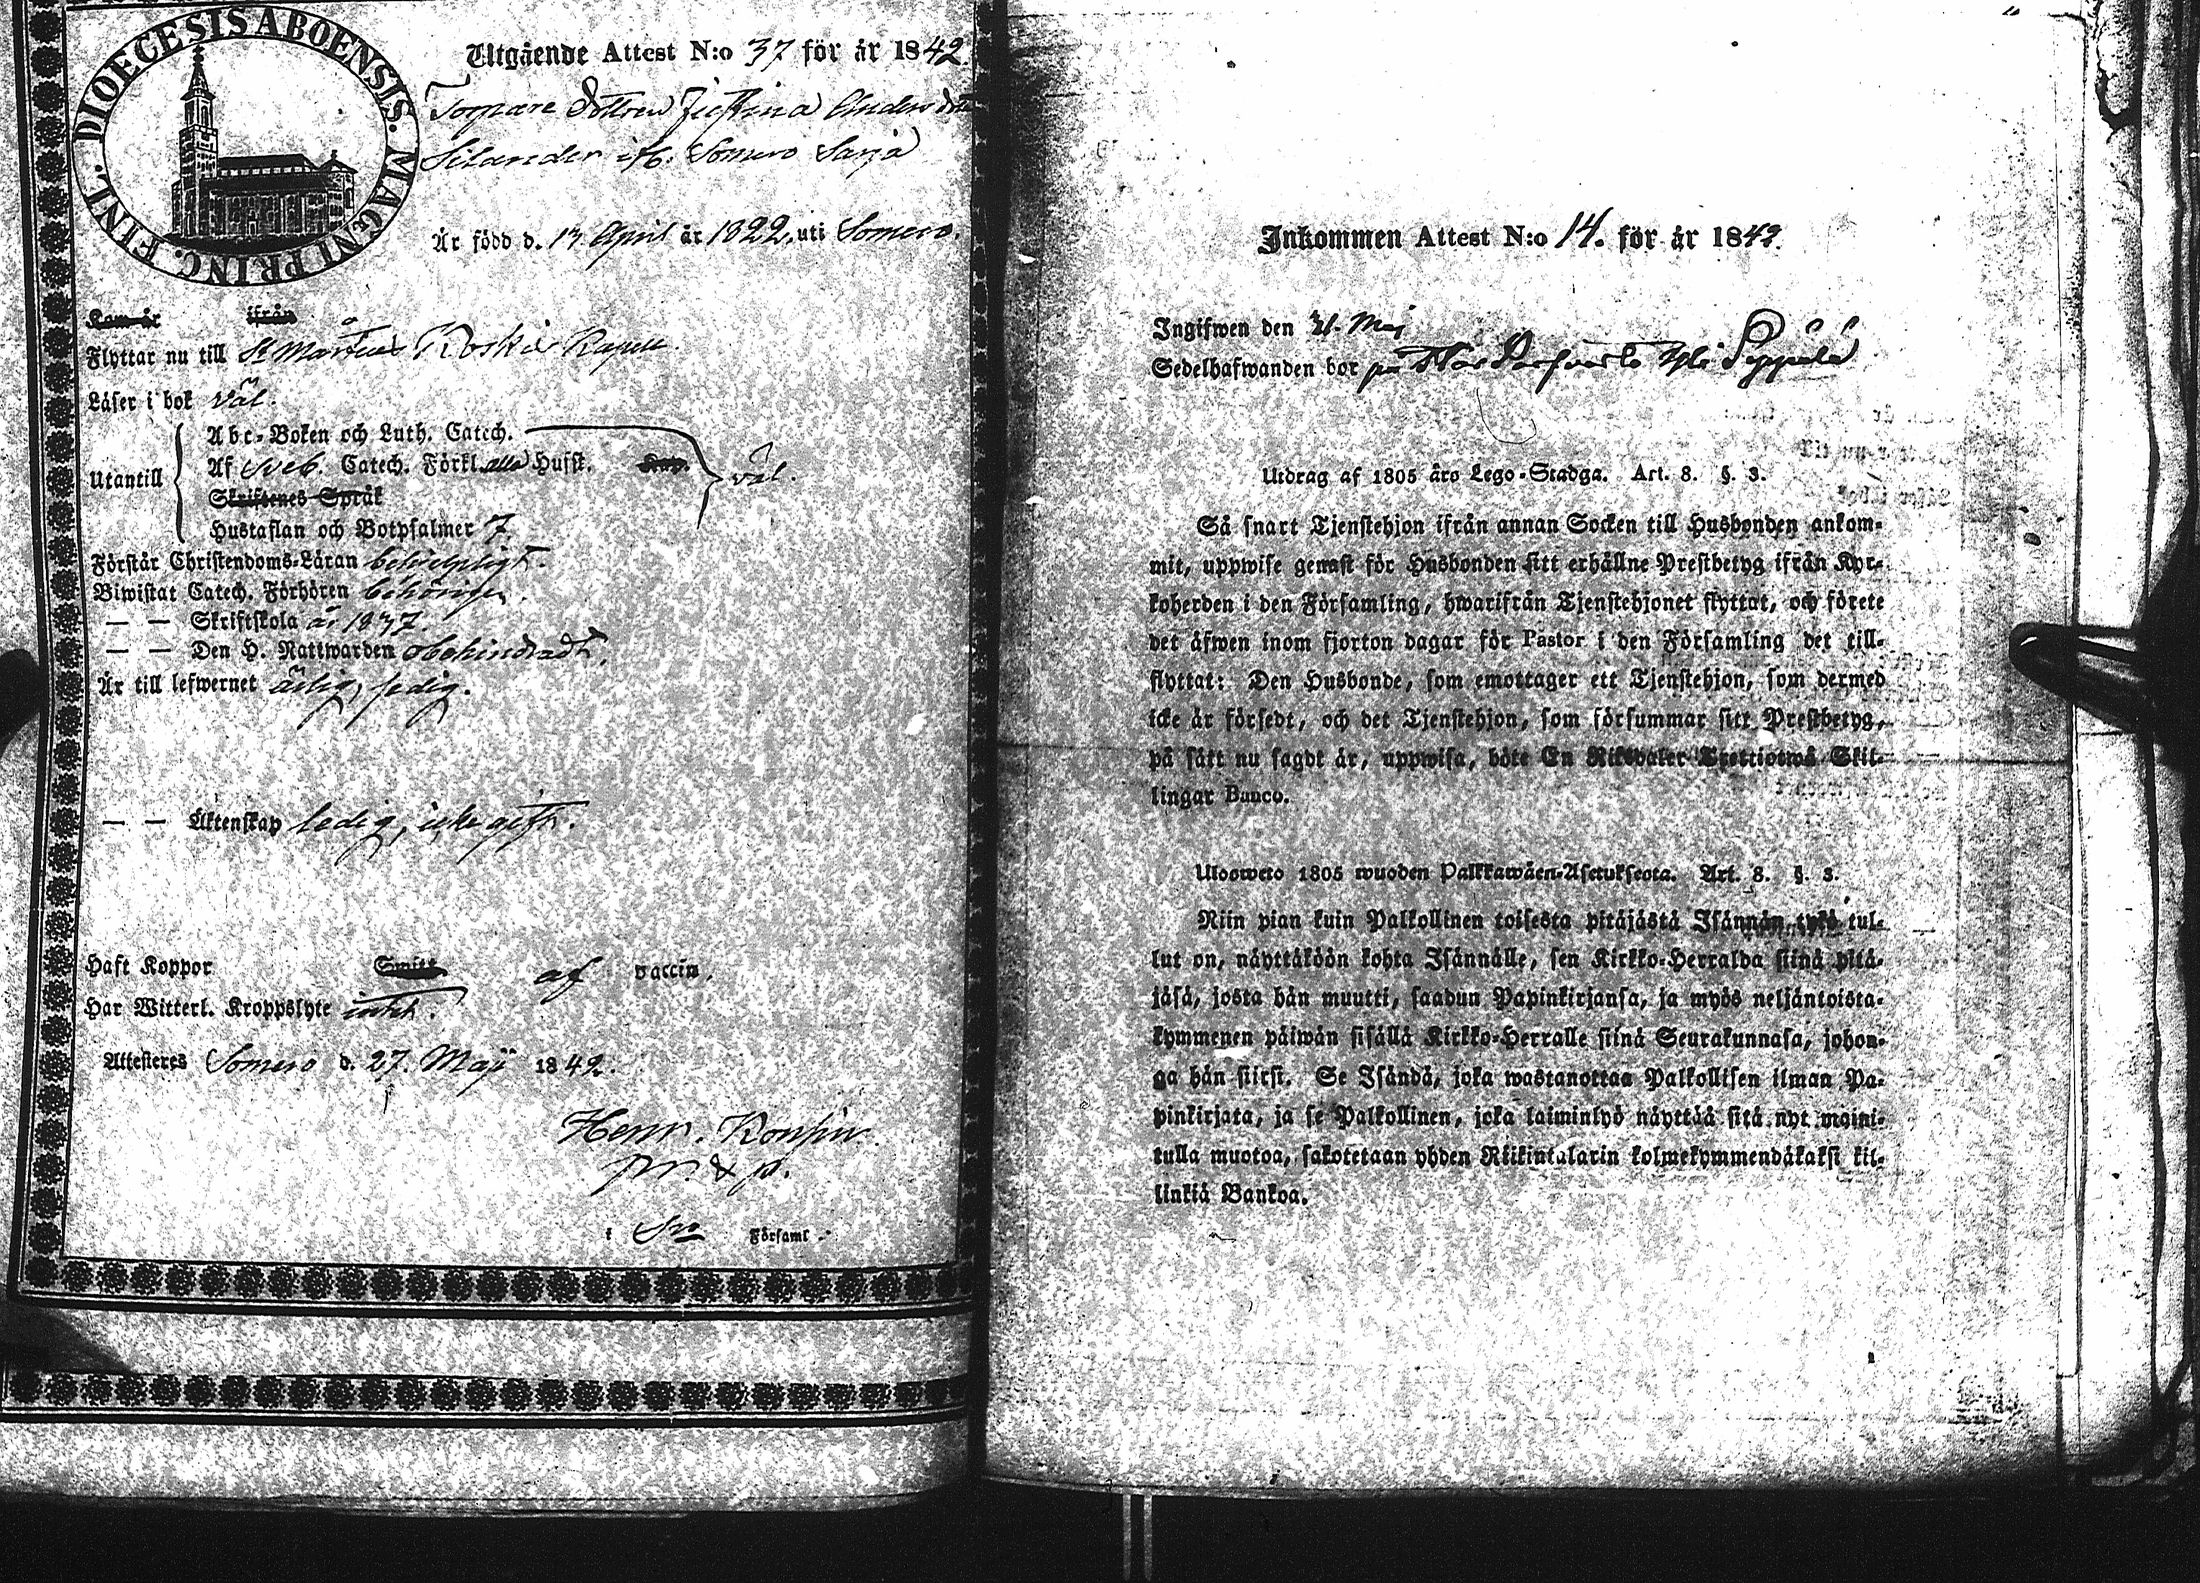 DIOECESIS ABOENSIS. MAGNI PRINC. FINL.
Utgående Attest N:o 37 för år 1842.
Torpare Dottren Justina Anders dott
Silander ifr. Somero Sarja
Är född d. 17 April år 1822, uti Somero.
Kom år ifrån
Flyttar nu till St Mårtens Koskis Kapell.
Läser i bok väl.
Utantill
Abc-Boken och Luth. Catech.
Af Sveb. Catech. Förkl. alla Hufst. Kap. väl.
Skriftenes Språk
Hustaflan och Botpsalmer 7.
Förstår Christendoms-Läran behörigligt.
Biwistat Catech. Förhören behörigen.
— — Skriftskola år 1837.
— — Den H. Nattwarden obehindradt.
Är till lefwernet ärlig, sedig.
— — Äktenskap ledig, icke gift.
Haft Koppor af vaccin.
Har Witterl. Kroppslyte intet.
Attesteres Somero d. 27. Maji 1842.
Henr.
i Sro Församl.
Inkommen Attest N:o 14. för år 1842.
Ingifwen den 31. Maj
Sedelhafwanden bor på Yli Seppälä
Utdrag af 1805 års Lego-Stadga. Art. 8. §. 3.
Så snart Tjenstehjon ifrån annan Socken till Husbonden ankom-
mit, uppwise genast för Husbonden sitt erhållne Prestbetyg ifrån Kyr-
koherden i den Församling, hwarifrån Tjenstehjonet flyttat, och förete
det äfwen inom fjorton dagar för Pastor i den Församling det till-
flyttat: Den Husbonde, som emottager ett Tjenstehjon, som dermed
icke är försedt, och det Tjenstehjon, som försummar sitt Prestbetyg,
på sätt nu sagdt är, uppwisa, böte En Riksdaler Trettiotwå Skil-
lingar Banco.
Ulosweto 1805 wuoden Palkkawäen-Asetuksesta. Art. 8. §. 3.
Niin pian kuin Palkollinen toisesta pitäjästä Isännän tykö tul-
lut on, näyttäköön kohta Isännälle, sen Kirkko-Herralda siinä pitä-
jäsä, josta hän muutti, saadun Papinkirjansa, ja myös neljäntoista-
kymmenen päiwän sisällä Kirkko-Herralle siinä Seurakunnasa, johon-
ga hän siirsi. Se Isändä, joka wastanottaa Palkollisen ilman Pa-
pinkirjata, ja se Palkollinen, joka laiminlyö näyttää sitä nyt maini-
tulla muotoa, sakotetaan yhden Riikintalarin kolmekymmendäkaksi kil-
linkiä Bankoa.